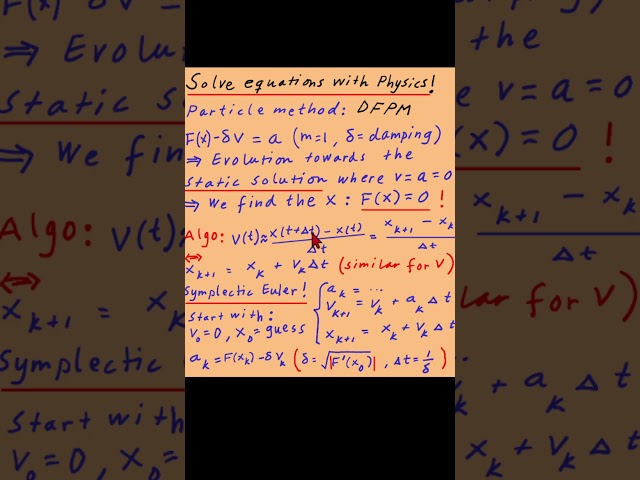 Solve equations with Physics!
Particle method: DFPM
F(x)-δV = a (m=1, δ=damping)
⇒ Evolution towards the
static solution where v=a=0
⇒ We find the x: F(x)=0 !
Algo: V(t)≈ x(t+Δt) - x(t) / Δt = x_{k+1} - x_k / Δt
⇔ x_{k+1} = x_k + V_k Δt (similar for V)
Symplectic Euler! { a_k = ...
V_{k+1} = V_k + a_k Δt
x_{k+1} = x_k + V_k Δt
Start with:
V_0=0, x_0=guess
a_k=F(x_k)-δV_k (δ=√|F'(x_0)|, Δt=1/δ)